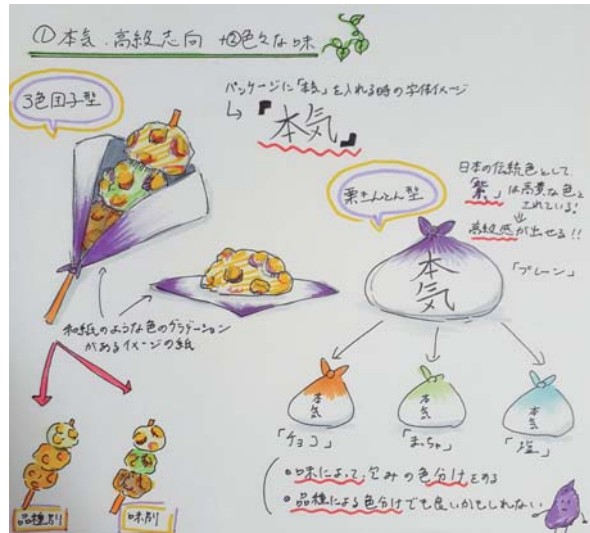 ①本気・高級志向 +②色々な味
3色団子型
パッケージに「本気」を入れる時の字体イメージ
↳『本気』
栗きんとん型
日本の伝統色として
「紫」は高貴な色と
されている!
⇓
高級感が出せる!!
本気
「プレーン」
和紙のような色のグラデーション
があるイメージの紙
本気
本気
本気
「チョコ」
「まっちゃ」
「塩」
品種別
味別
•味によって包みの色分けをする
•品種による色分けでも良いかもしれない